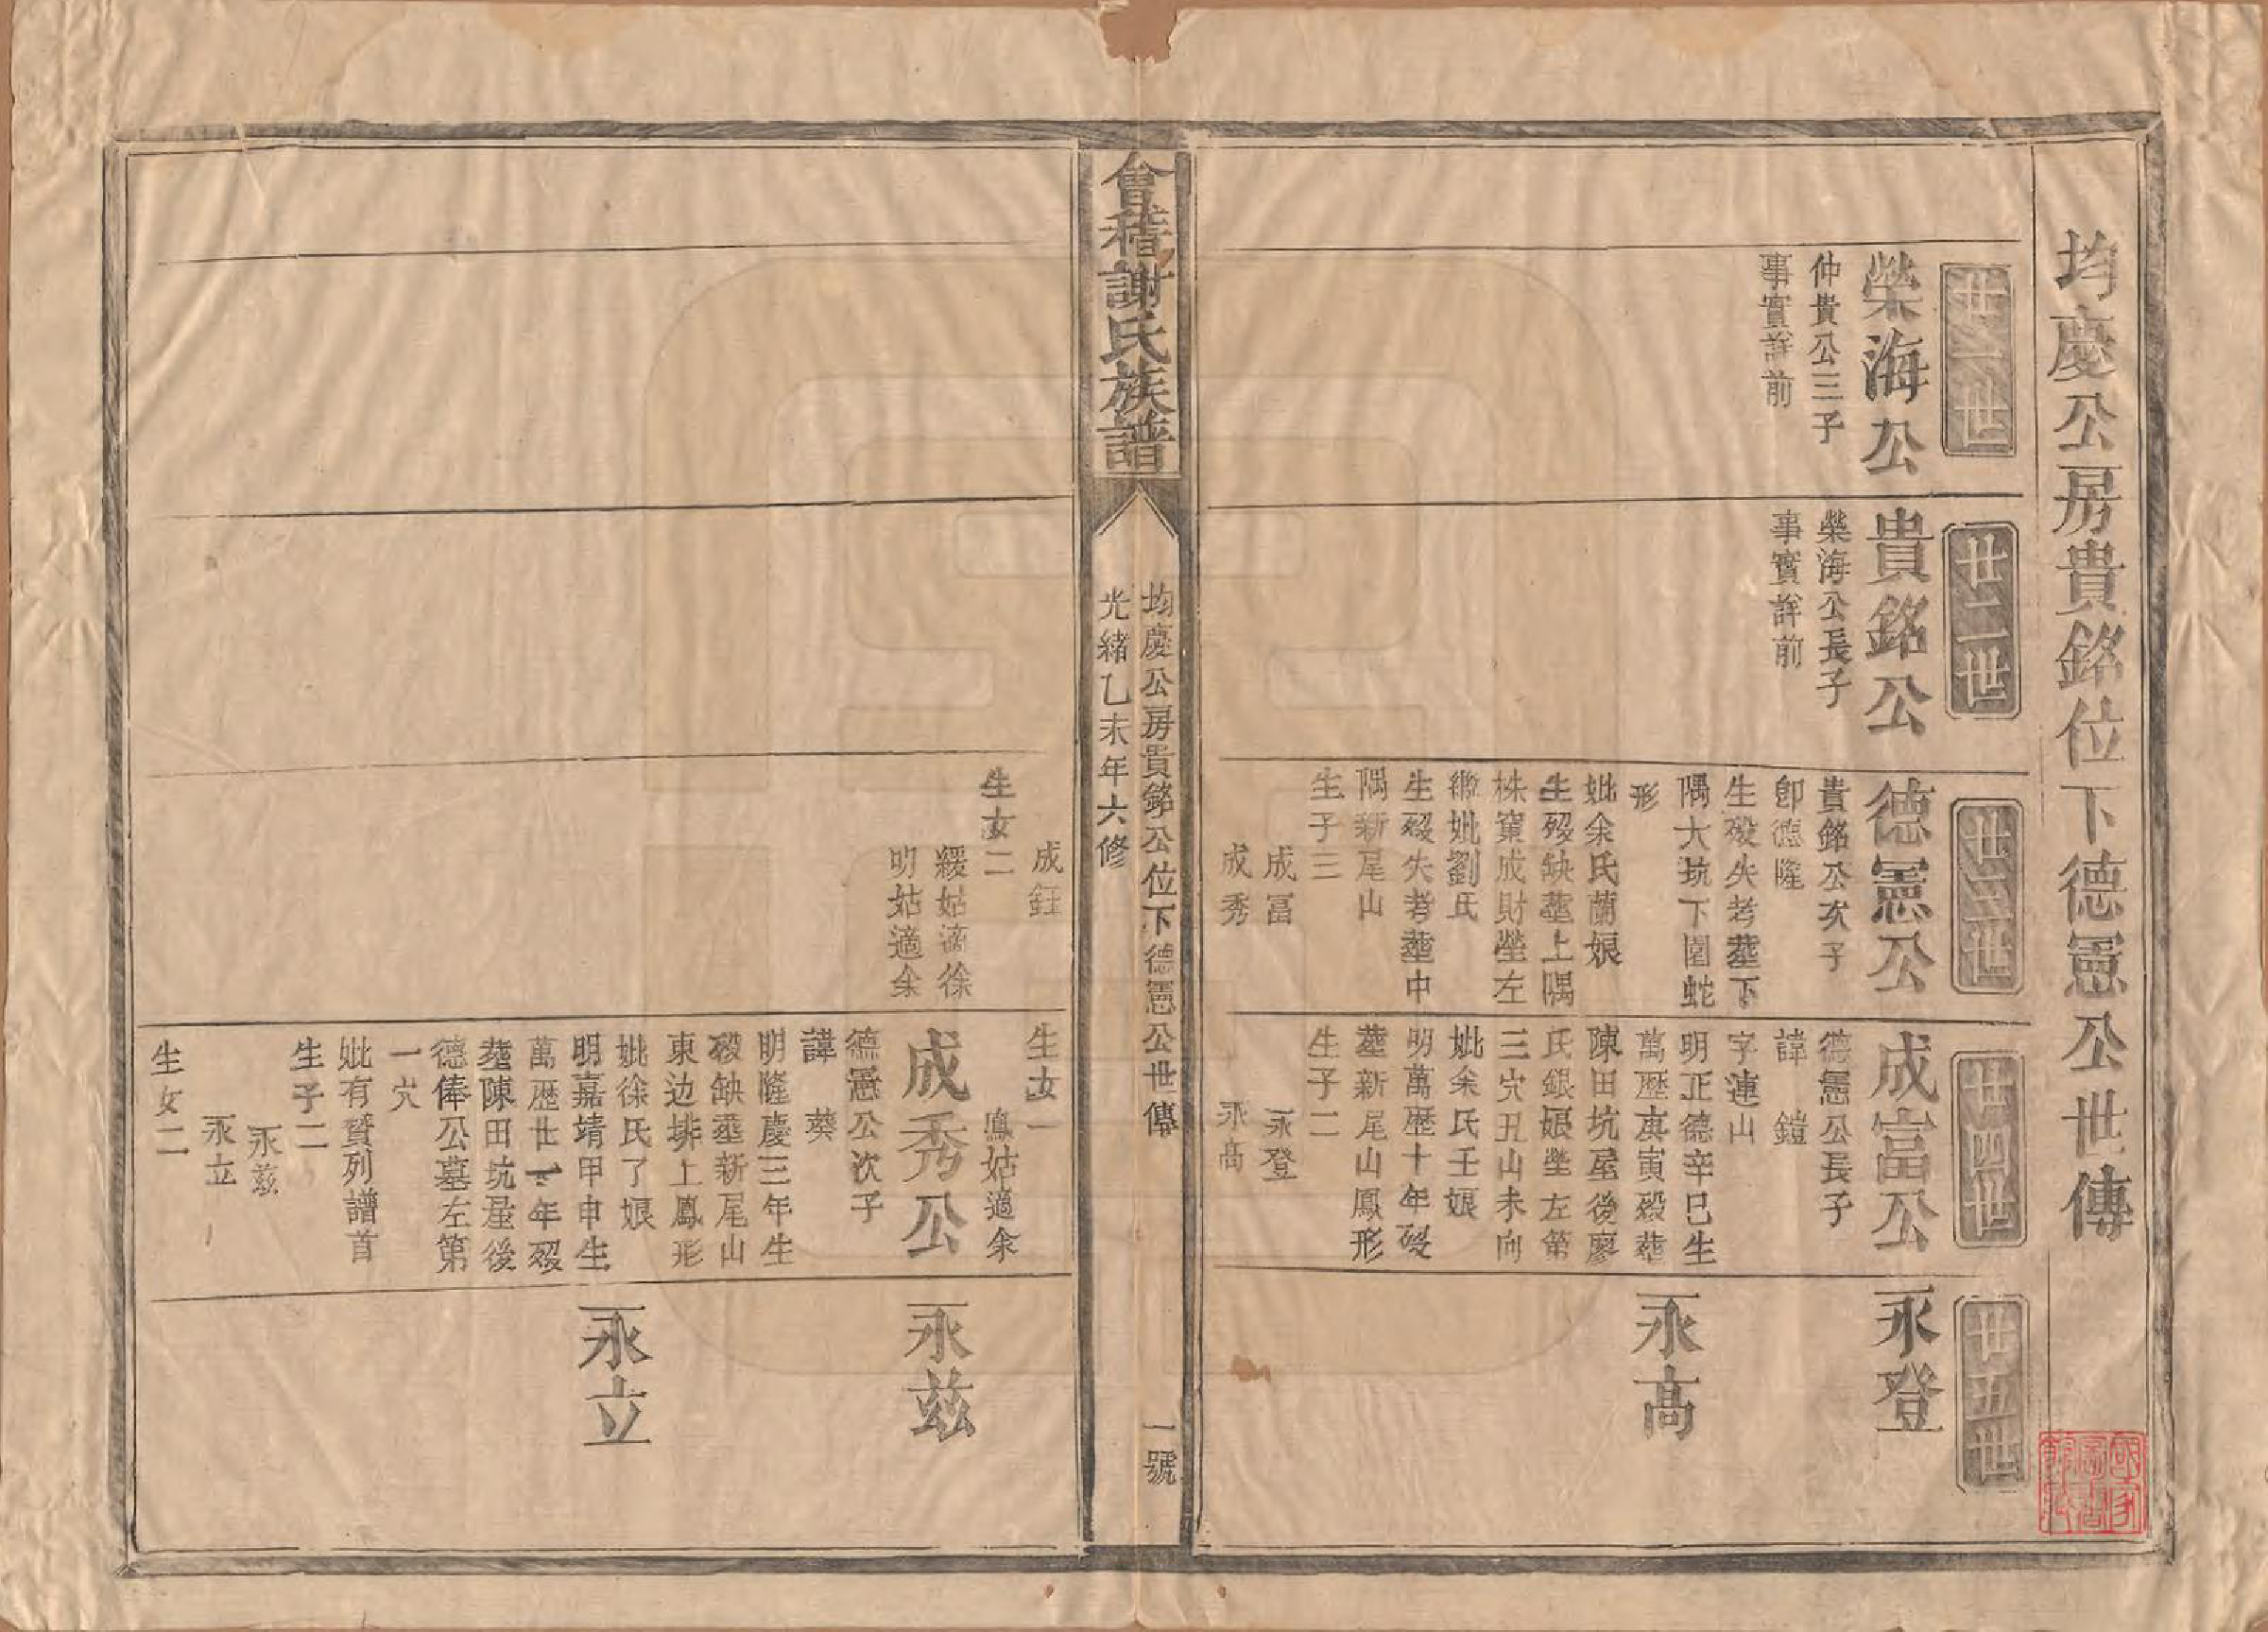 均慶公房貴銘位下德憲公世傳
廿一世
榮海公
仲貴公三子
事實詳前
廿二世
貴銘公
榮海公長子
事實詳前
廿三世
德憲公
貴銘公次子
卽德隆
生殁失考塟下
隅大坑下圍蛇
形
妣余氏蘭娘
生殁缺塟上隅
株窠成財塋左
繼妣劉氏
生殁失考塟中
隅新尾山
生子三
成富
成秀
廿四世
成富公
德憲公長子
諱鎧
字連山
明正德辛巳生
萬歷庚寅殁塟
陳田坑屋後廖
氏銀娘塋左第
三穴丑山未向
妣余氏壬娘
明萬歷十年殁
塟新尾山鳳形
生子二
永登
永高
廿五世
永登
永高
會稽謝氏族譜
均慶公房貴銘公位下德憲公世傳
一號
光緒乙未年六修
成鈺
生女二
緩姑適徐
明姑適余
生女一
鳳姑適余
成秀公
德憲公次子
諱葵
明隆慶三年生
殁缺塟新尾山
東边排上鳳形
妣徐氏了娘
明嘉靖甲申生
萬歷廿一年殁
塟陳田坑屋後
德俸公墓左第
一穴
妣有贊列譜首
生子二
永茲
永立
生女二
永茲
永立